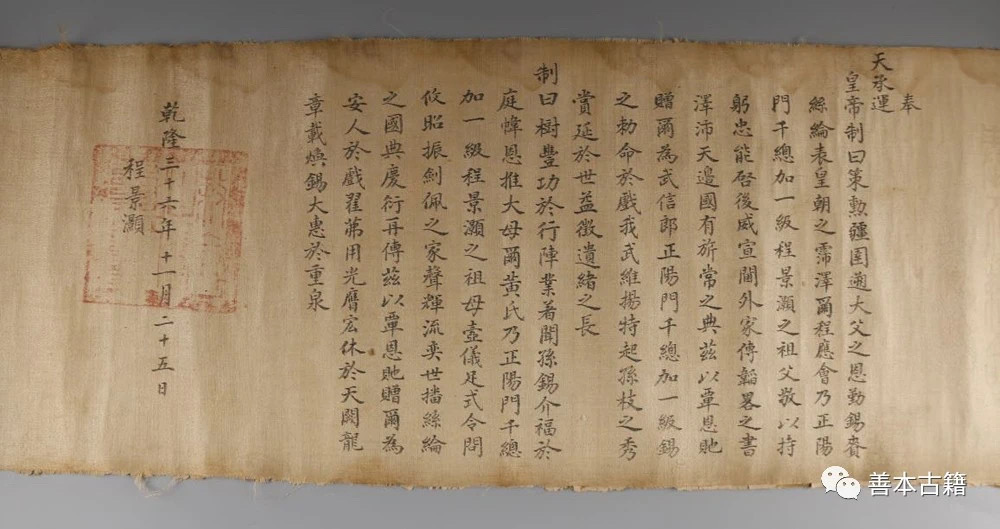 奉
天承運
皇帝制曰策勲疆圉遡大父之恩勤錫賚
絲綸表皇朝之霈澤爾程應會乃正陽
門千總加一級程景灝之祖父敬以持
躬忠能啓後威宣閫外家傳韜畧之書
澤沛天邊國有旂常之典茲以覃恩貤
贈爾為武信郎正陽門千總加一級錫
之勅命於戲我武維揚特起孫枝之秀
賞延於世益徵遺緒之長
制曰樹豐功於行陣業著聞孫錫介福於
庭幃恩推大母爾黃氏乃正陽門千總
加一級程景灝之祖母壼儀足式令問
攸昭振劍佩之家聲輝流奕世播絲綸
之國典慶衍再傳茲以覃恩貤贈爾為
安人於戲翟茀用光膺宏休於天闕龍
章載煥錫大惠於重泉
乾隆三十六年十一月二十五日
程景灝
善本古籍